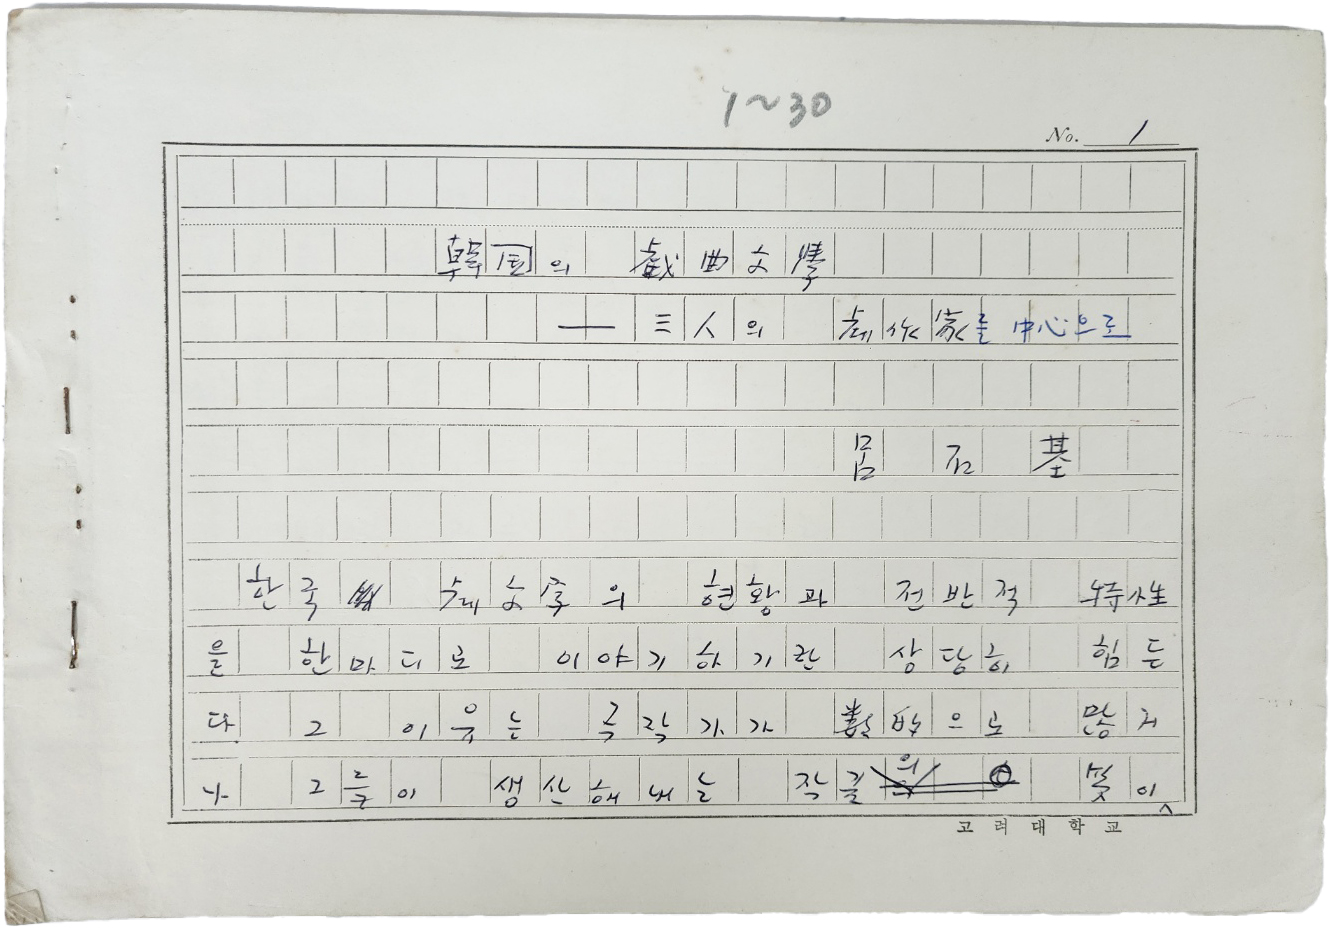 1~30
No. 1
韓国의 戱曲文學
— 三人의 劇作家를 中心으로
呂 石 基
한국 문학의 현황과 전반적 特性
을 한마디로 이야기하기란 상당히 힘든
다 그 이유는 극작가가 數的으로 많거
나 그들이 생산해내는 작품 수이
고려대학교